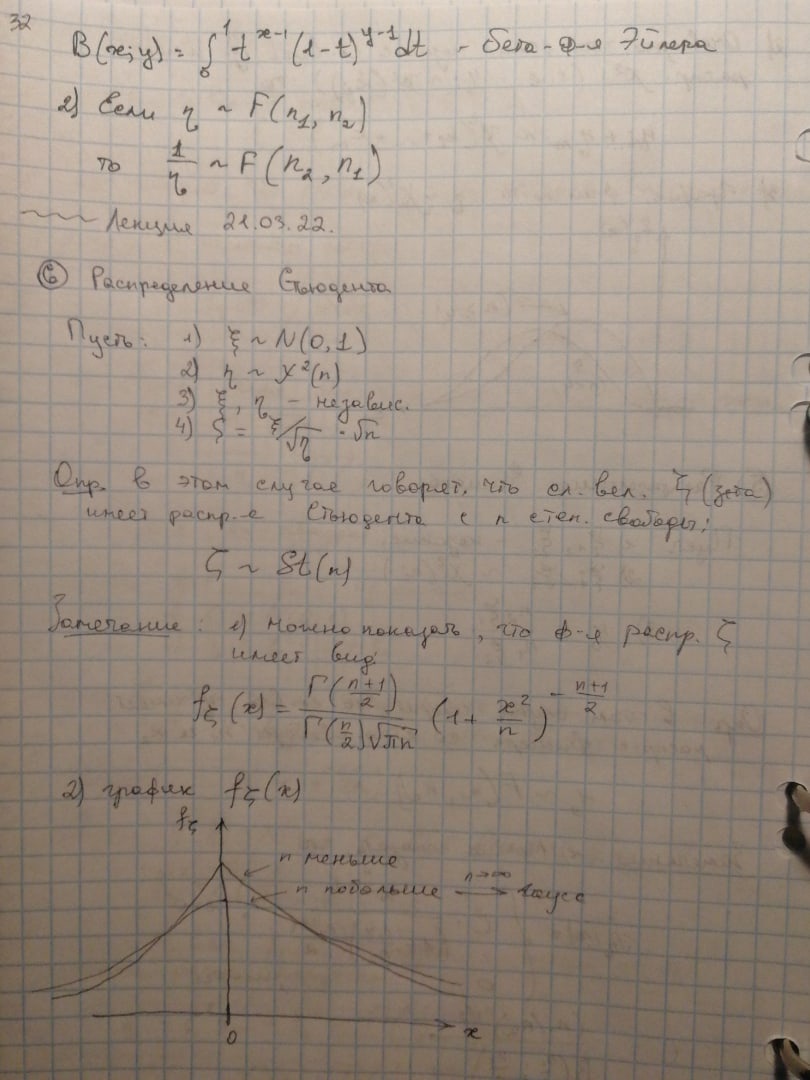 32
B(x;y) = ∫₀¹ t^(x-1) (1-t)^(y-1) dt - бета-ф-я Эйлера
2) Если η ~ F(n₁, n₂)
то 1/η ~ F(n₂, n₁)
Лекция 21.03.22.
⑥ Распределение Стьюдента
Пусть: 1) ξ ~ N(0,1)
2) η ~ χ²(n)
3) ξ, η - независ.
4) ζ = ξ/√η · √n
Опр. в этом случае говорят, что сл. вел. ζ (зета)
имеет распр-е Стьюдента с n степ. свободы:
ζ ~ St(n)
Замечание: 1) можно показать, что ф-я распр. ζ
имеет вид:
f_ζ(x) = Γ((n+1)/2) / (Γ(n/2)√(πn)) (1 + x²/n)^(-(n+1)/2)
2) график f_ζ(x)
f_ζ
n меньше
n побольше n→∞ ⟶ Гаусс
0
x